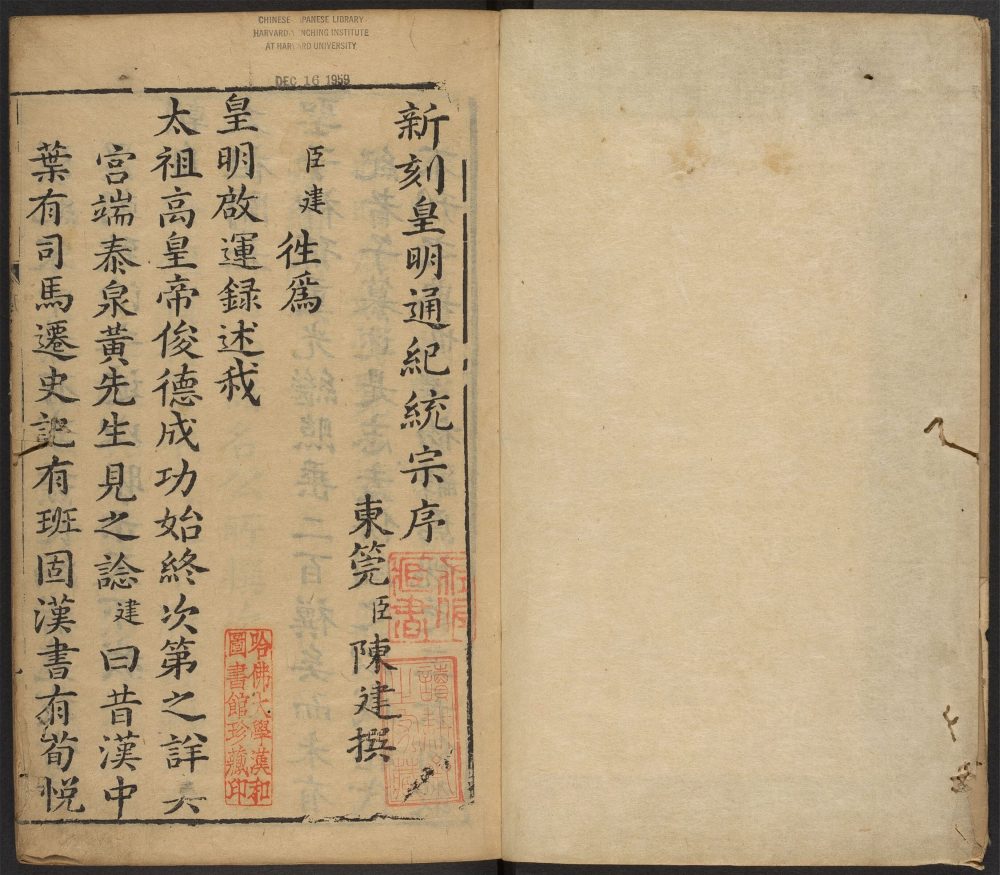 CHINESE JAPANESE LIBRARY
HARVARD YENCHING INSTITUTE
AT HARVARD UNIVERSITY
DEC 16 1959
新刻皇明通紀統宗序
東筦臣陳建撰
臣建徃爲
皇明啟運録述我
太祖高皇帝俊德成功始終次第之詳矣
宫端泰泉黄先生見之諗建曰昔漢中
葉有司馬遷史記有班固漢書有荀悦
哈佛大學漢和
圖書館珍藏印